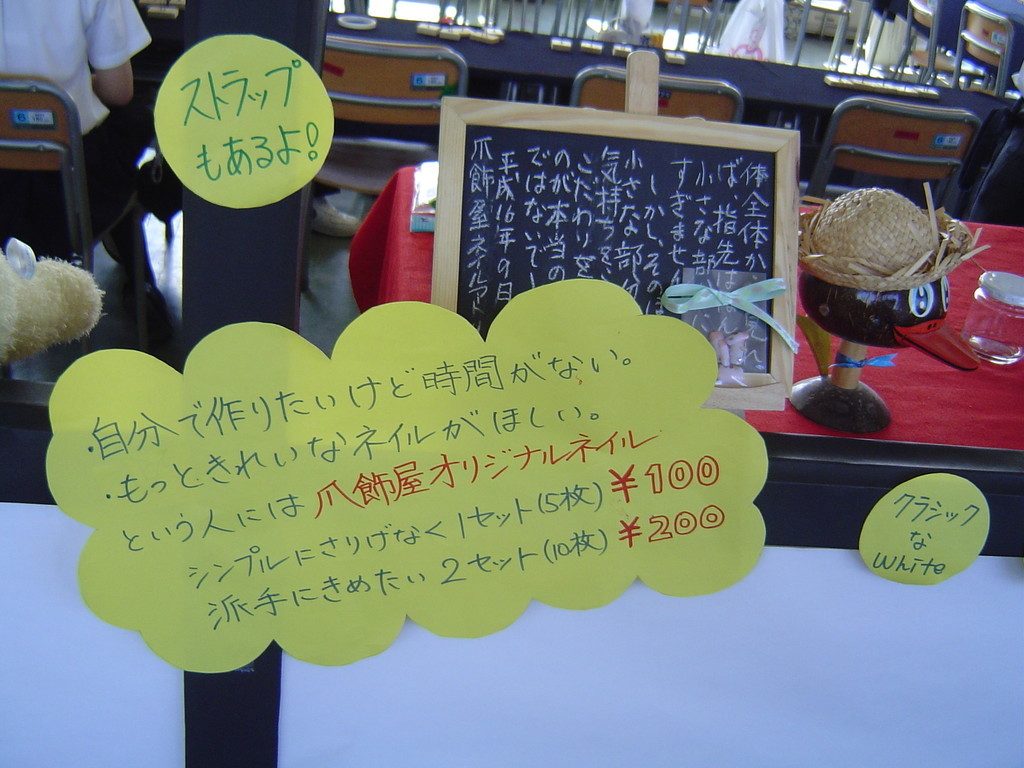 ストラップ
もあるよ!
体全体か
ば、指先は
小さな部
すぎません
しかし、その
小さな部分
気持ちを
こだわりを
のが本当の
ではないでし
平成16年9月
爪飾屋ネイルアート
・自分で作りたいけど時間がない。
・もっときれいなネイルがほしい。
という人には爪飾屋オリジナルネイル
シンプルにさりげなく1セット(5枚)¥100
派手にきめたい2セット(10枚)¥200
クラシック
な
White